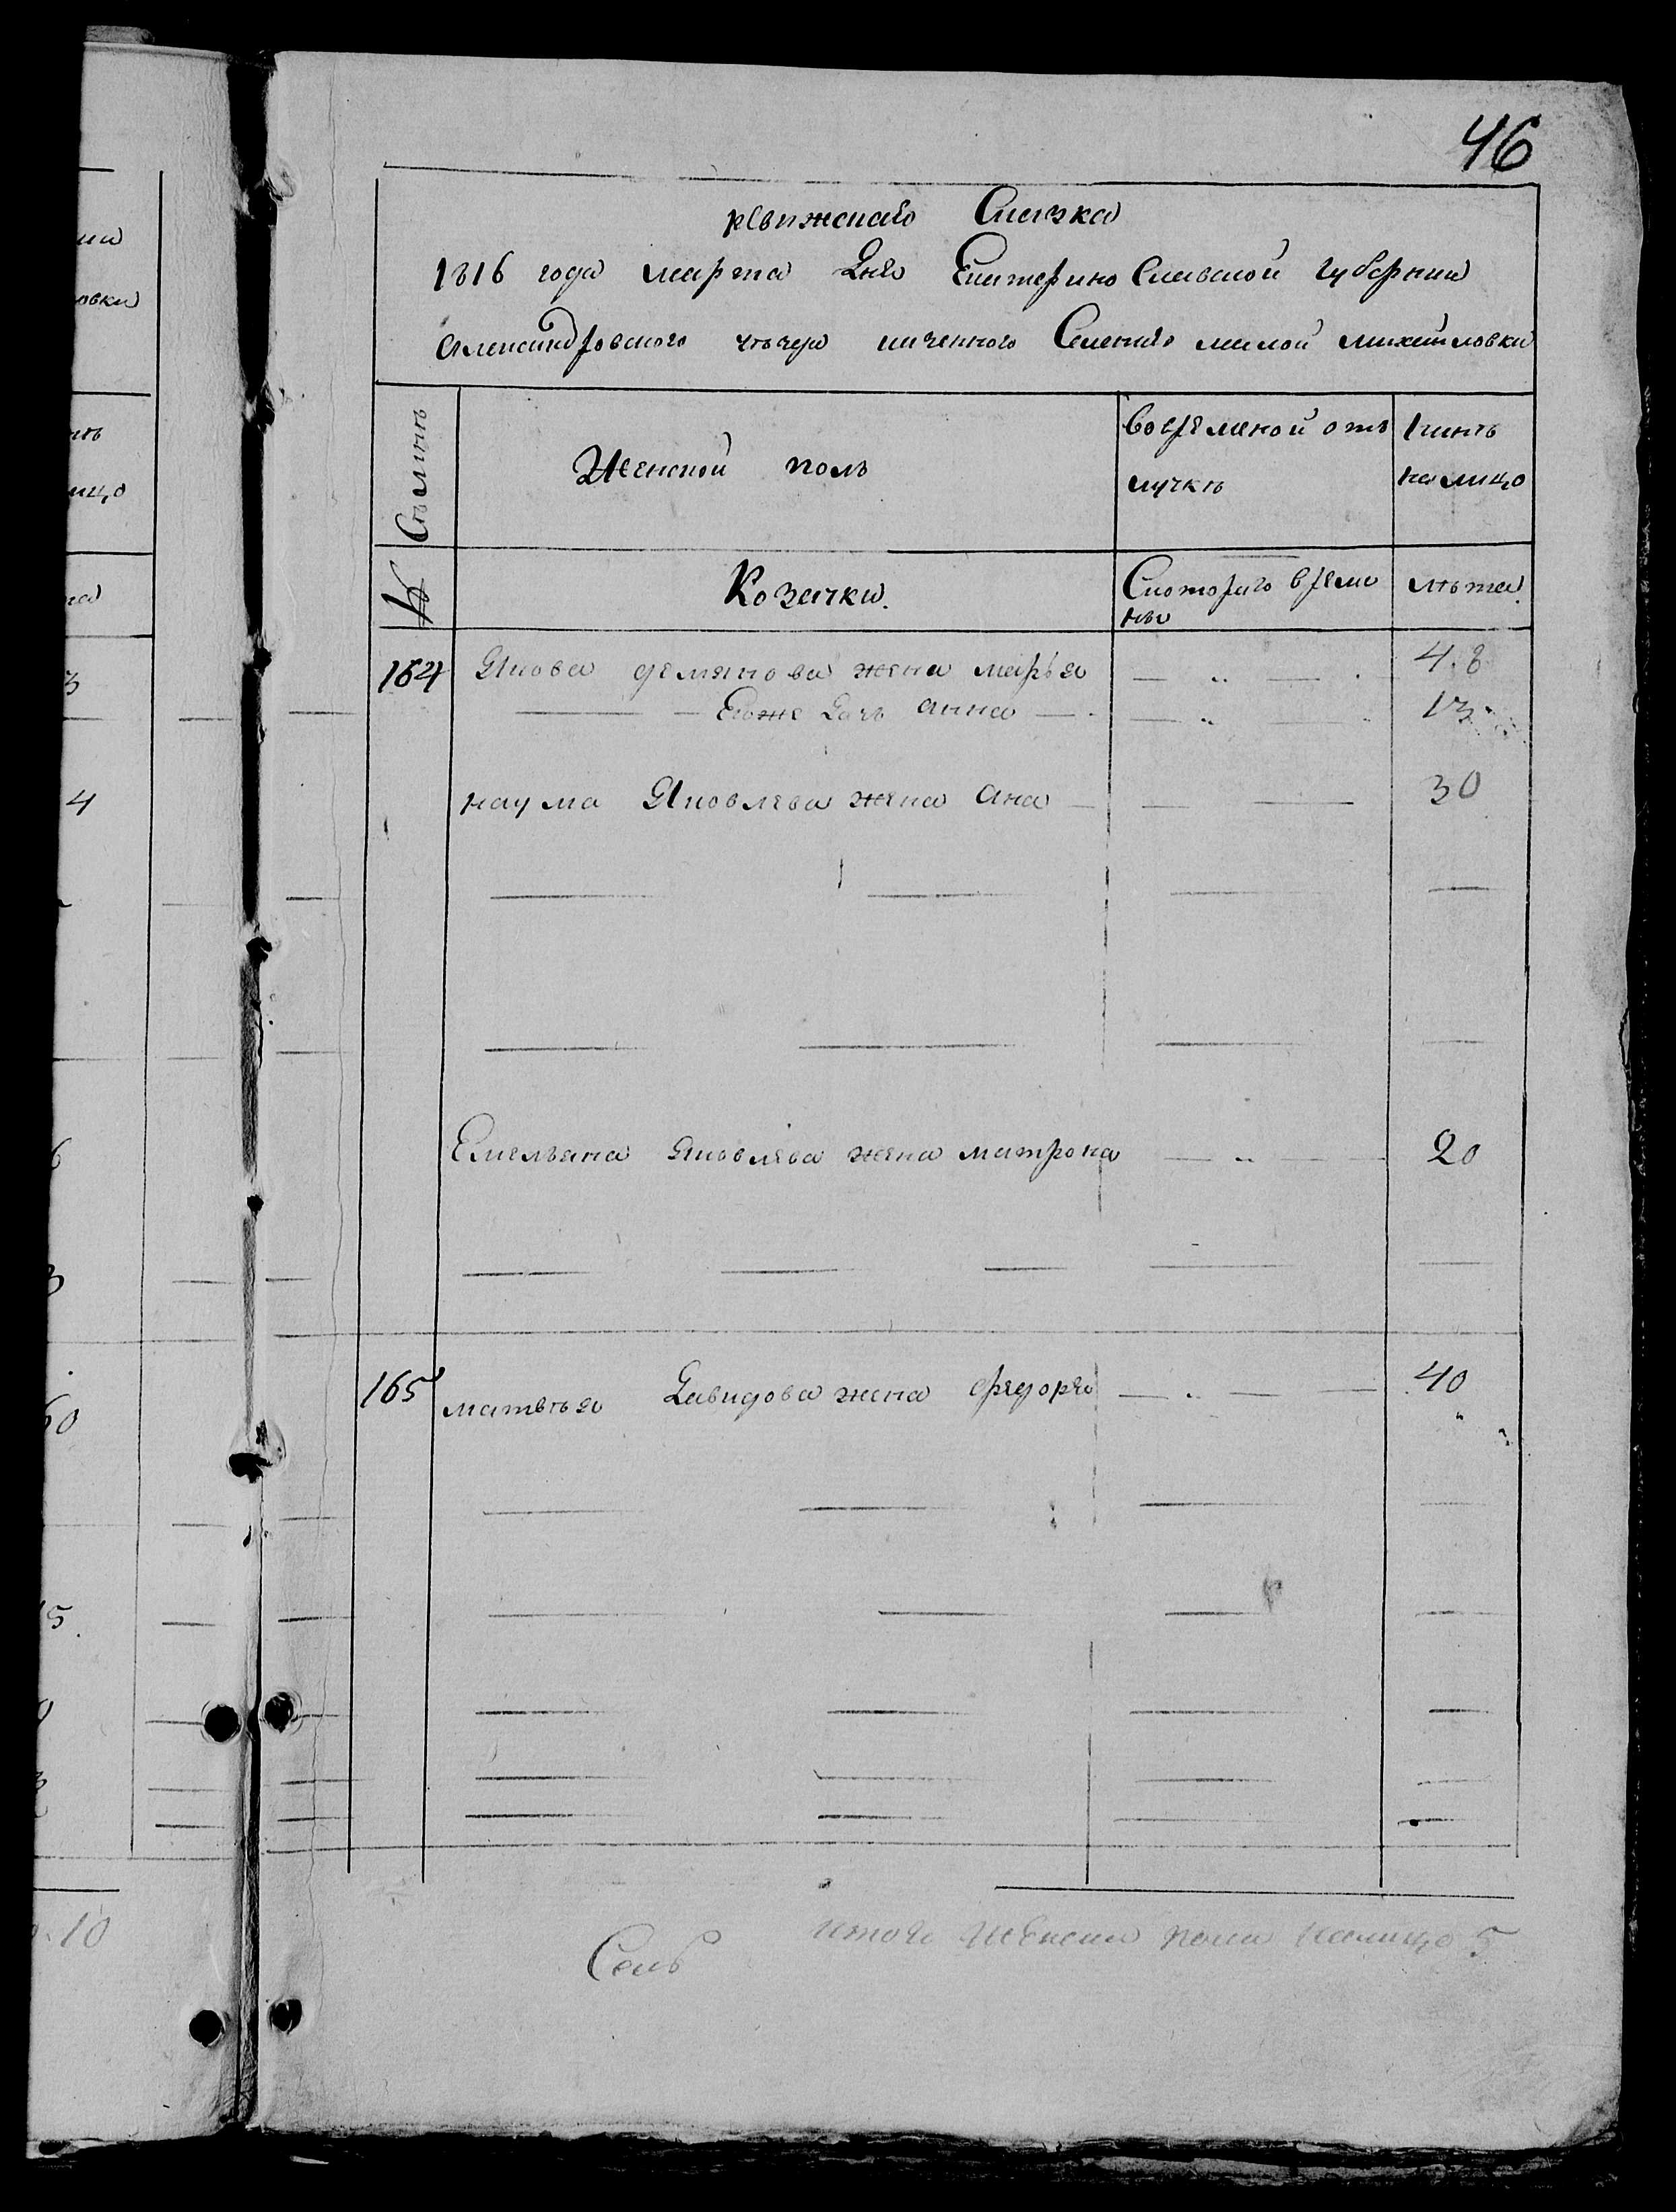 46
ревижская Сказка
1816 года марта дня Екатерино Славской губернии
Александровского уезда казенного Селения малой михайловки
Семьи
Женской полъ
Вовременой отъ
лучкъ
нынъ
на лицо
№
Козачки.
Скоторого време
ны
лѣта.
164
Якова демянова жена марья
48
Егоже дочь анна
13
наума Яковлева жена Анна
30
Емельяна Яковлева жена матрона
20
165
матвѣя Давидова жена федоря
40
итого женска пола налицо 5
Сель